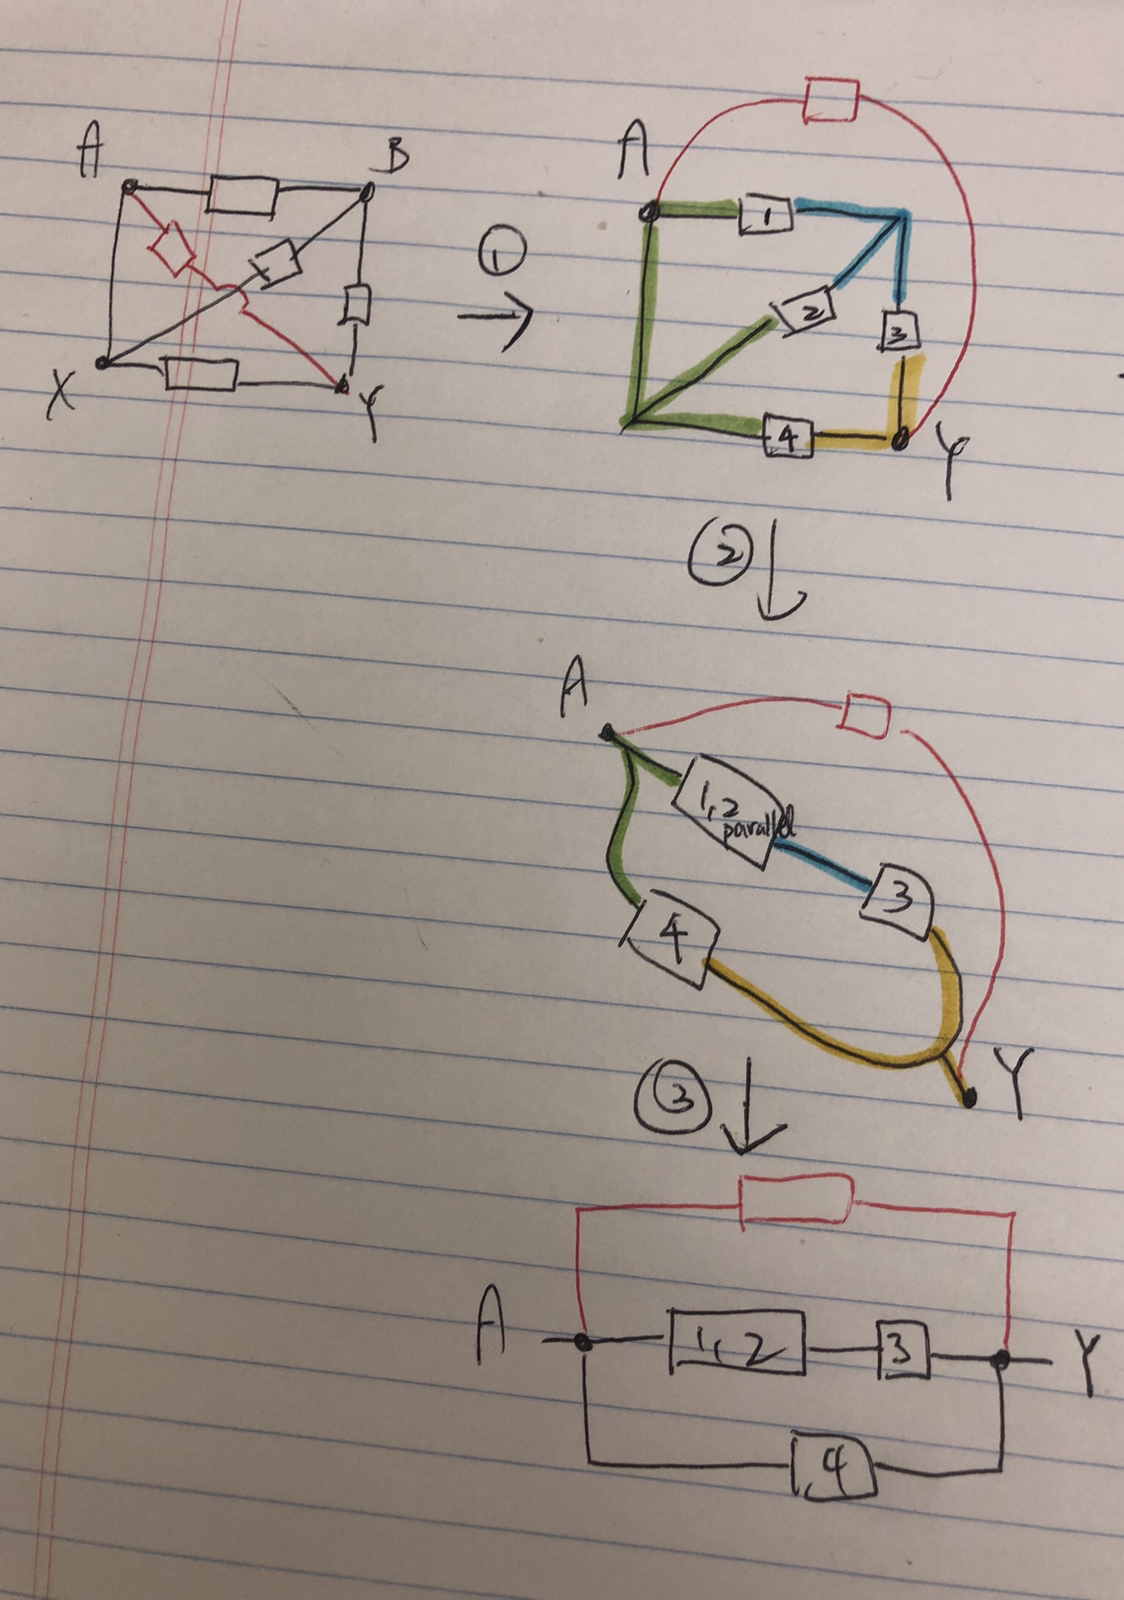 A
B
X
Y
①
A
1
2
3
4
Y
②
A
1,2
parallel
3
4
Y
③
A
1,2
3
Y
4